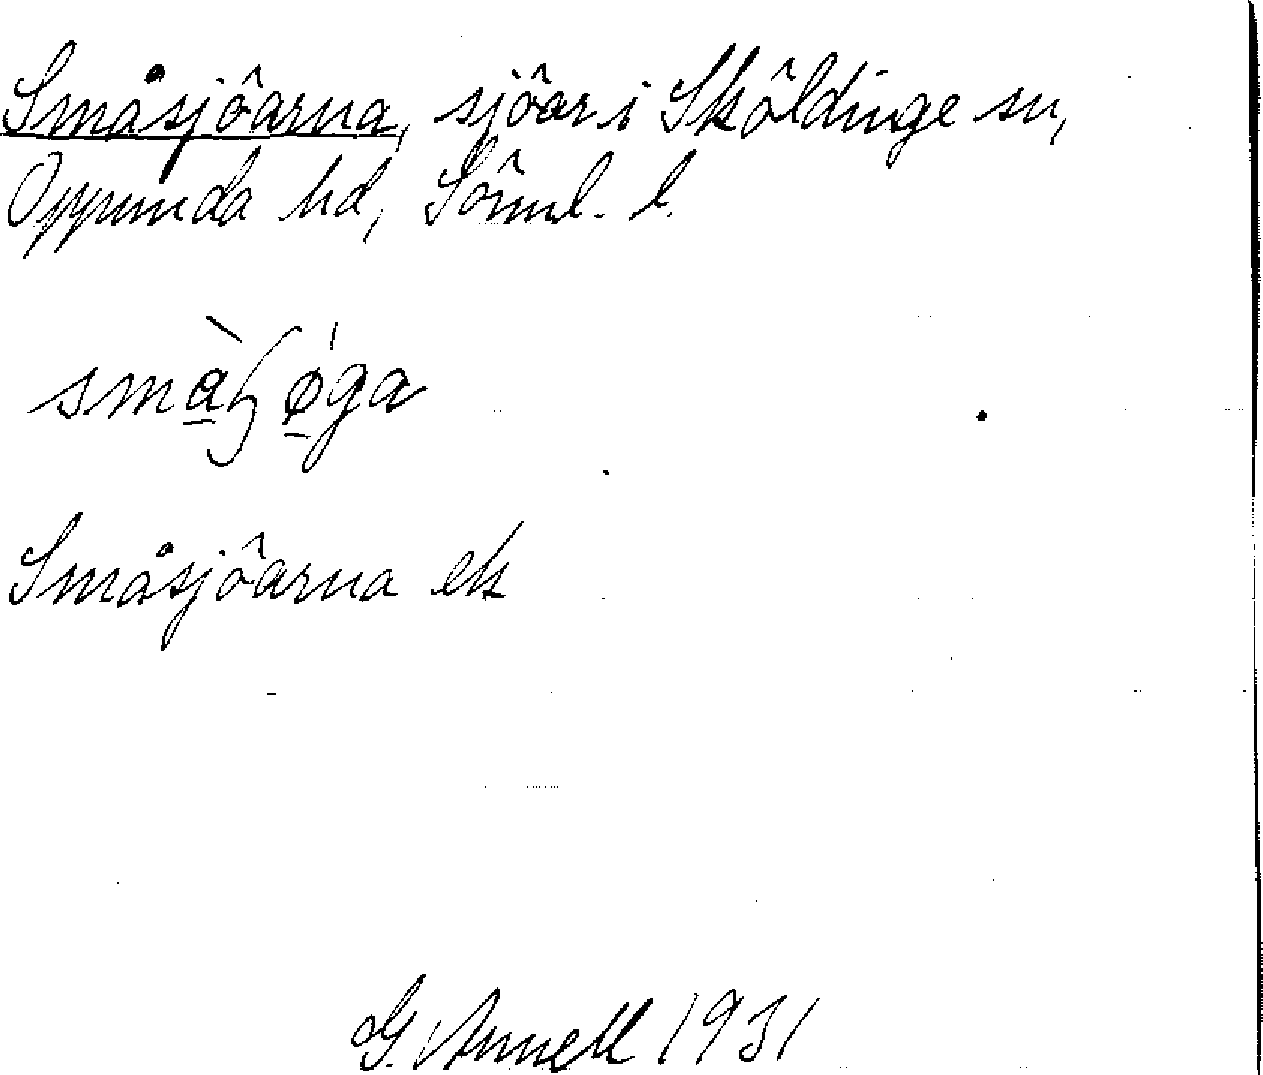 Småsjöarna, sjöar i Sköldinge sn,
Oppunda hd, Söml. l.
småʃøga
Småsjöarna ek
G. Annell 1931